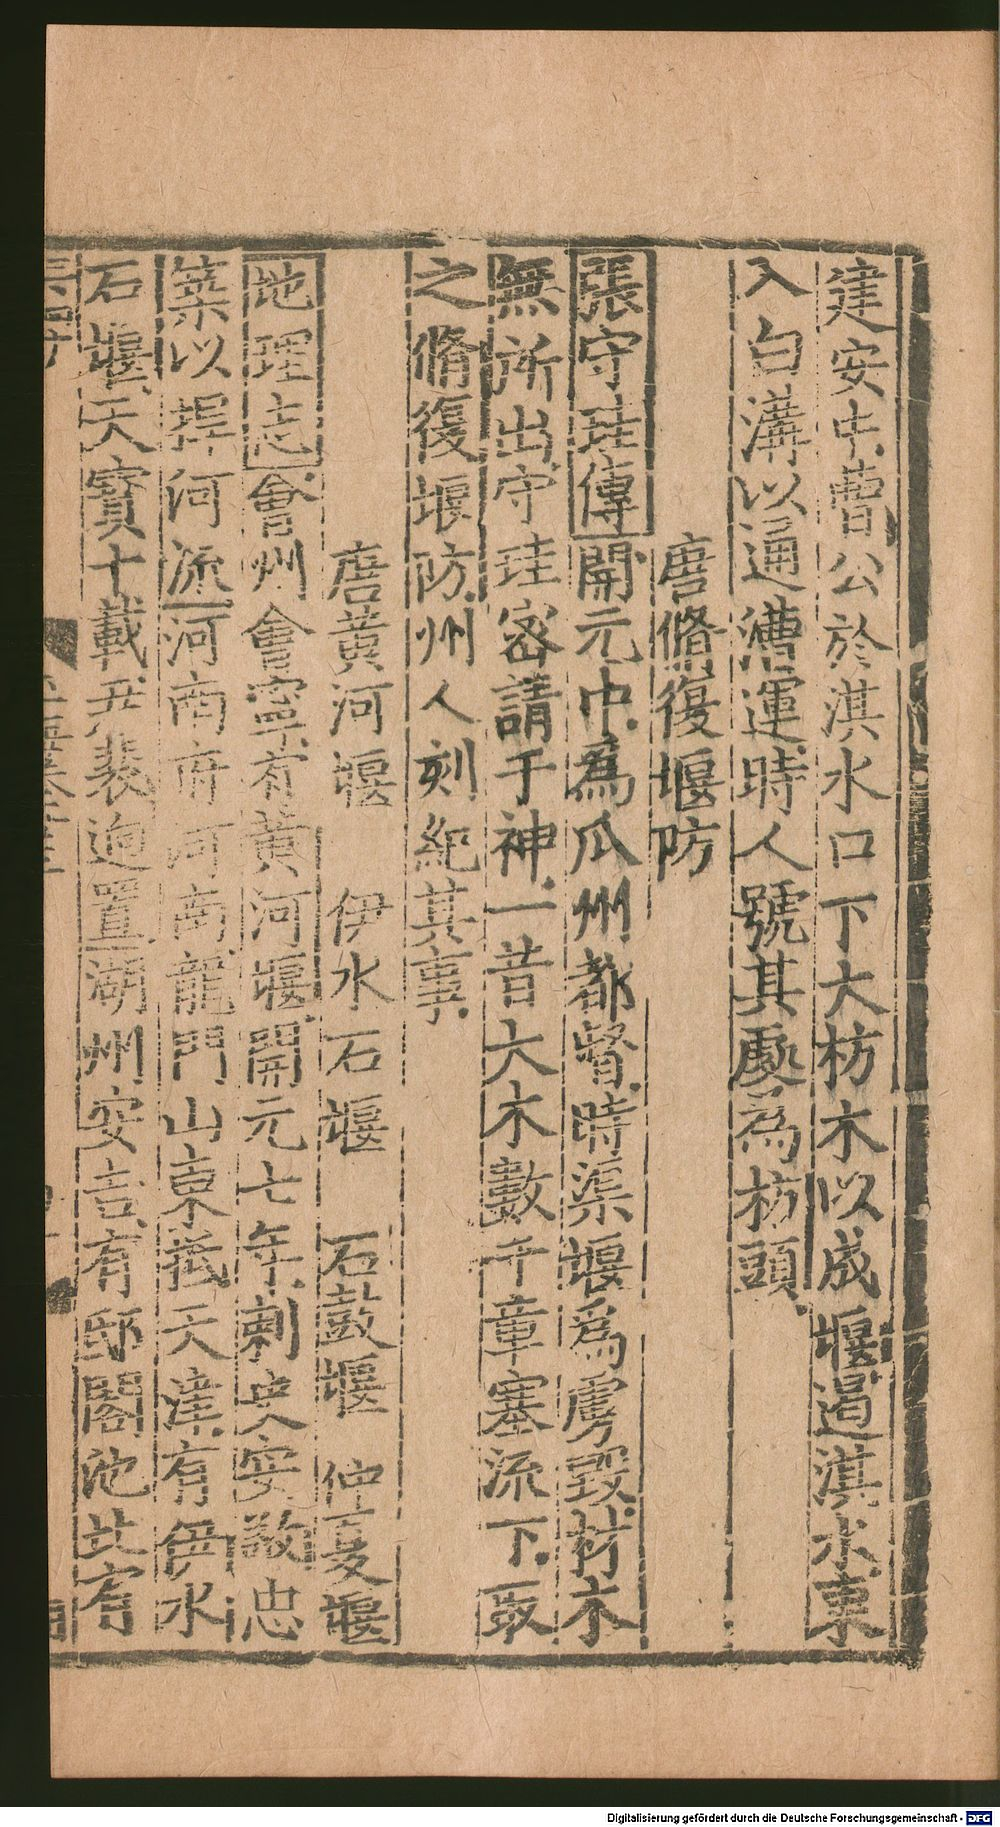 建安中曹公於淇水口下大枋木以成堰遏淇水東
入白溝以通漕運時人號其處為枋頭
唐脩復堰防
張守珪傳開元中為瓜州都督時渠堰為虜毀材木
無所出守珪密請于神一昔大木數千章塞流下取
之脩復堰防州人刻紀其事
唐黃河堰 伊水石堰 石鼓堰 仲夏堰
地理志會州會寧有黃河堰開元七年刺史安敬忠
築以捍河流河南府河南龍門山東抵天津有伊水
石堰天寶十載尹裴迥置湖州安吉有邸閣池北有
Digitalisierung gefördert durch die Deutsche Forschungsgemeinschaft - DFG